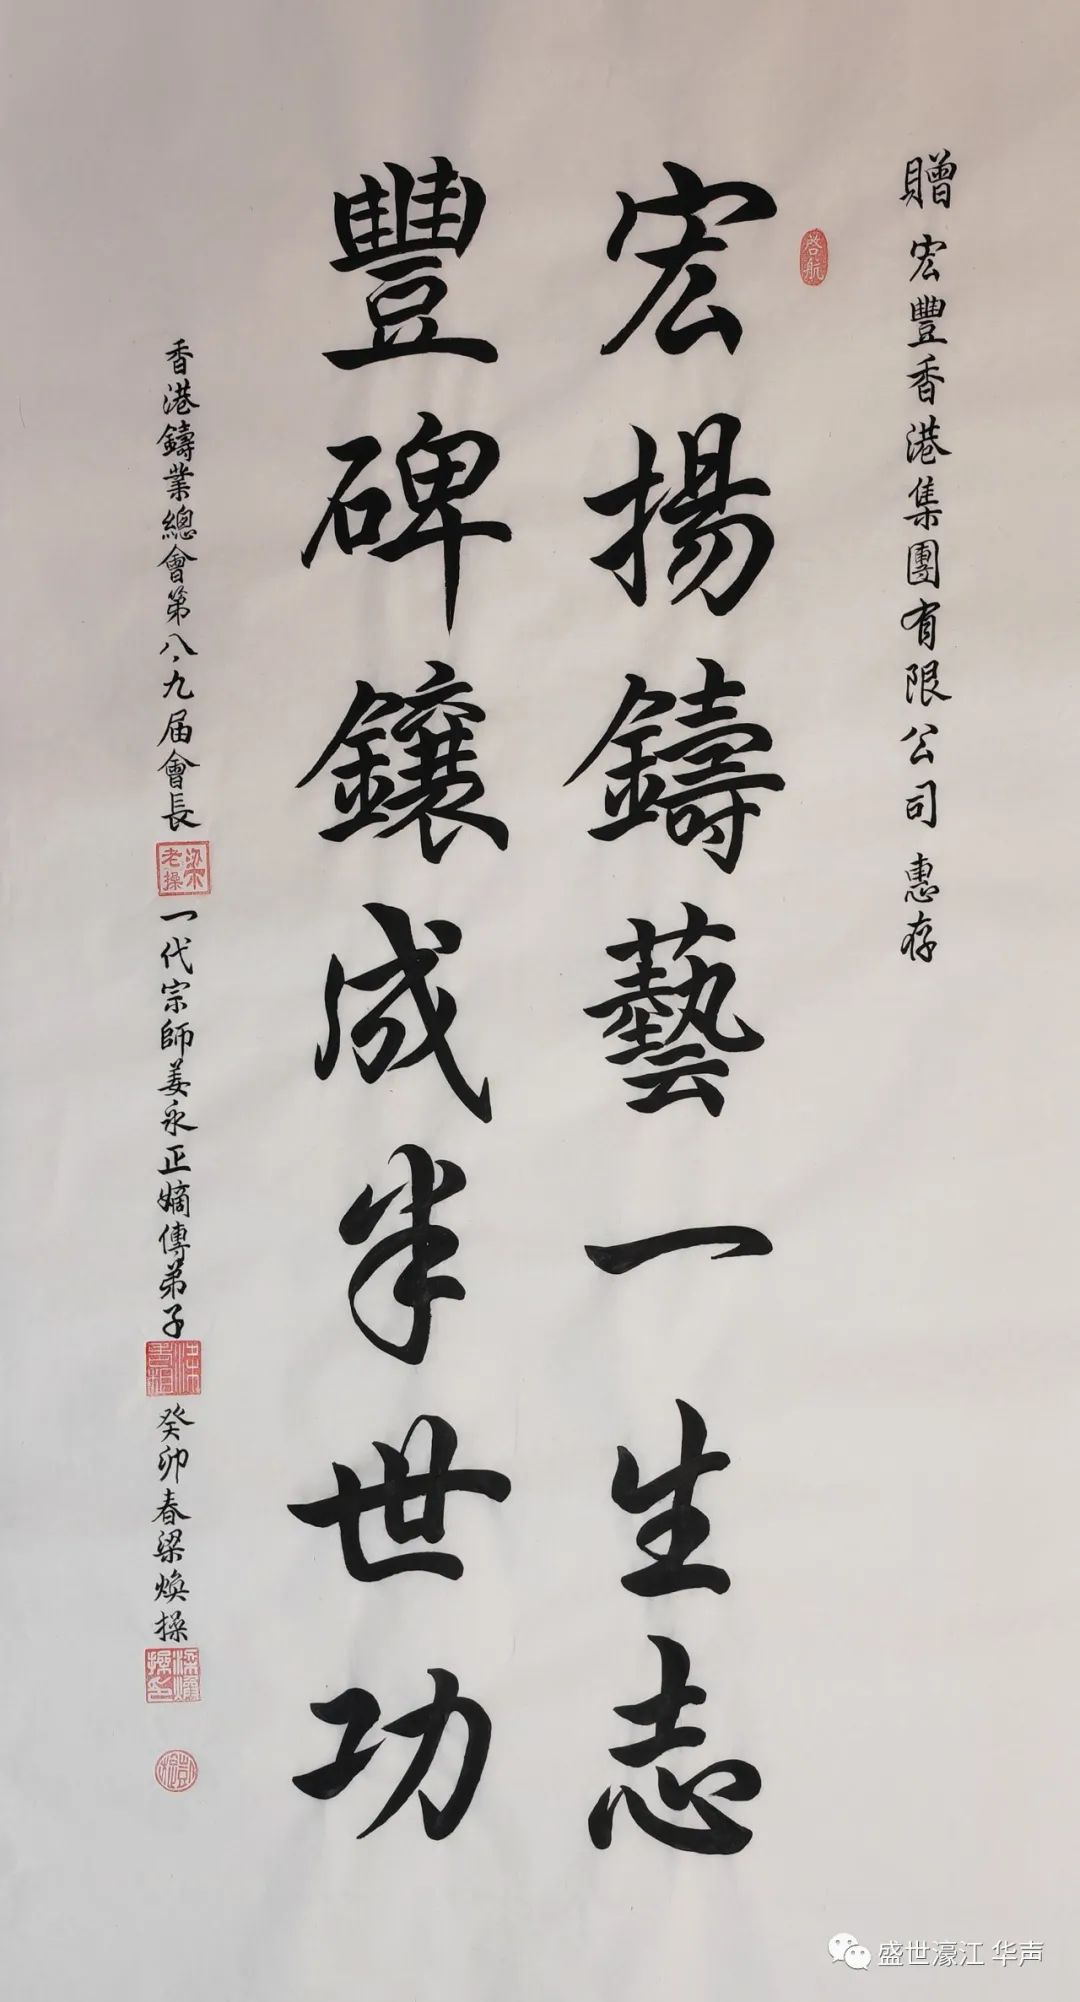 贈 宏豐香港集團有限公司 惠存
啓航
宏揚鑄藝一生志
豐碑鑲成半世功
香港鑄業總會第八、九届會長
梁老操
一代宗師姜永正嫡傳弟子
癸卯春梁煥操
盛世濠江 华声